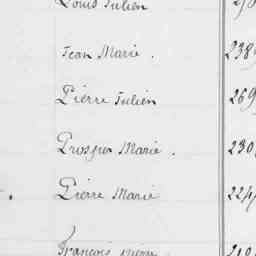 Louis Julien
Jean Marie . 238
Pierre Julien 269
Prosper Marie . 230
Pierre Marie 224
François